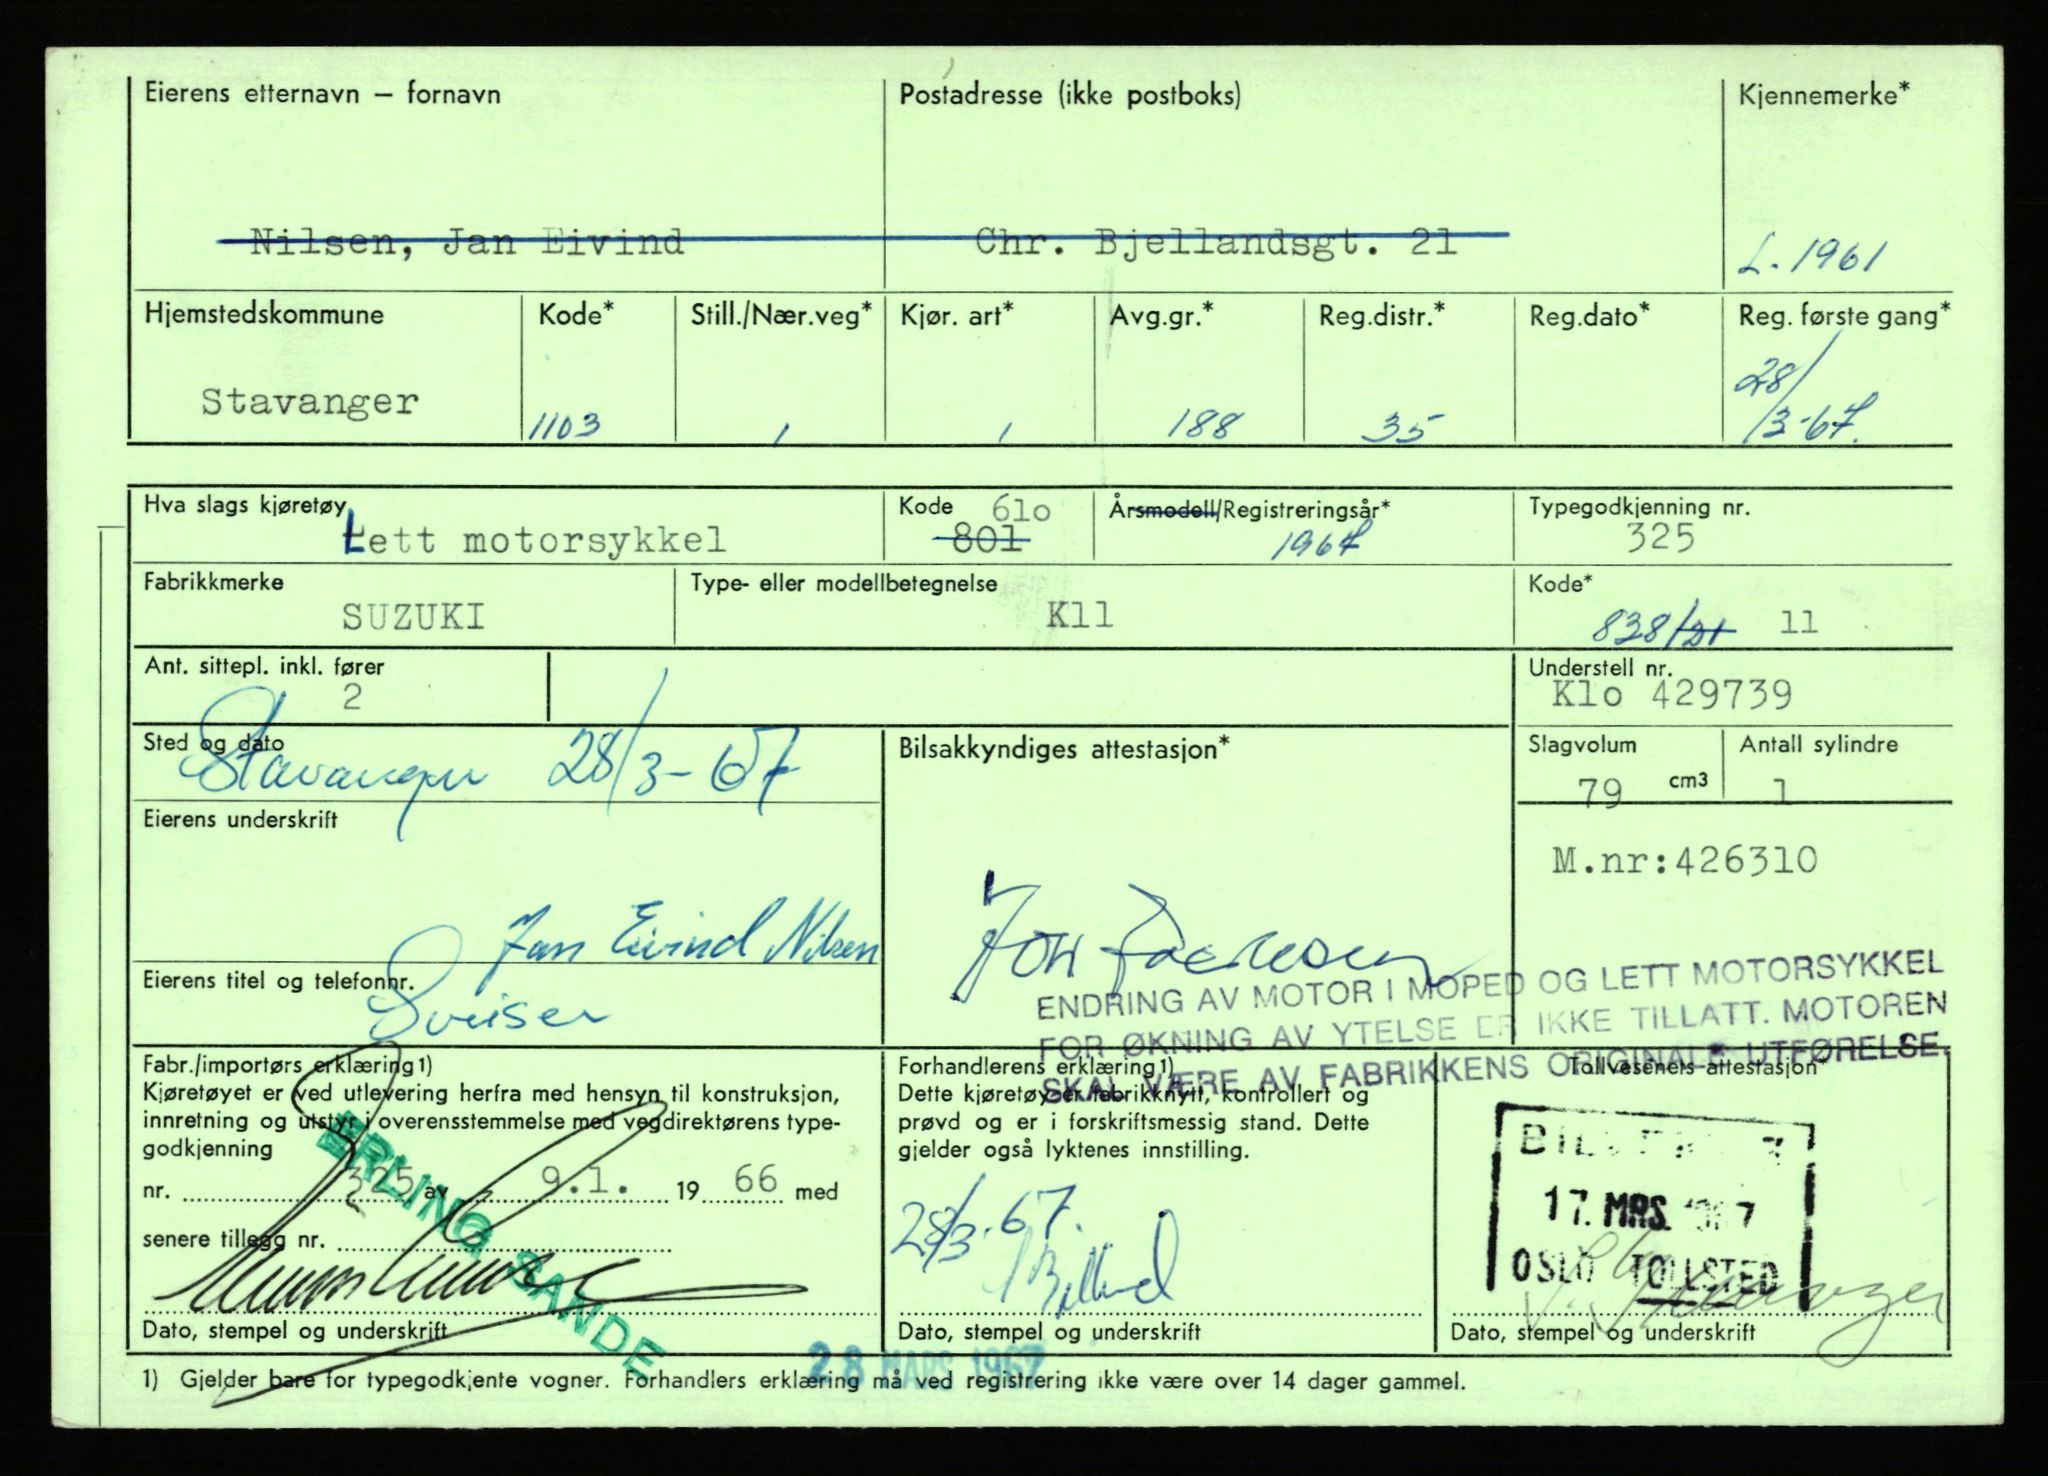 Eierens etternavn – fornavn
Postadresse (ikke postboks)
Kjennemerke*
Nilsen, Jan Eivind
Chr. Bjellandsgt. 21
L. 1961
Hjemstedskommune
Kode*
Still./Nær.veg*
Kjør. art*
Avg.gr.*
Reg.distr.*
Reg.dato*
Reg. første gang*
Stavanger
1103
1
1
188
35
28/3-67.
Hva slags kjøretøy
Lett motorsykkel
Kode 610
801
Årsmodell/Registreringsår*
1967
Typegodkjenning nr.
325
Fabrikkmerke
SUZUKI
Type- eller modellbetegnelse
K11
Kode*
838/21 11
Ant. sittepl. inkl. fører
2
Understell nr.
K1o 429739
Sted og dato
Stavanger 28/3-67
Bilsakkyndiges attestasjon*
Slagvolum
79 cm3
Antall sylindre
1
Eierens underskrift
Jan Eivind Nilsen
M.nr:426310
Eierens titel og telefonnr.
Sveiser
ENDRING AV MOTOR I MOPED OG LETT MOTORSYKKEL
FOR ØKNING AV YTELSE ER IKKE TILLATT. MOTOREN
SKAL VÆRE AV FABRIKKENS ORIGINALE UTFØRELSE.
Fabr./importørs erklæring1)
Kjøretøyet er ved utlevering herfra med hensyn til konstruksjon,
innretning og utstyr i overensstemmelse med vegdirektørens type-
godkjenning
nr. 325 av 9.1. 19 66 med
senere tillegg nr.
ERLING SANDE
Dato, stempel og underskrift
Forhandlerens erklæring1)
Dette kjøretøy er fabrikknytt, kontrollert og
prøvd og er i forskriftsmessig stand. Dette
gjelder også lyktenes innstilling.
28/3-67.
Dato, stempel og underskrift
28 MARS 1967
Tollvesenets attestasjon*
17. MRS. 1967
OSLO TOLLSTED
Dato, stempel og underskrift
1) Gjelder bare for typegodkjente vogner. Forhandlers erklæring må ved registrering ikke være over 14 dager gammel.